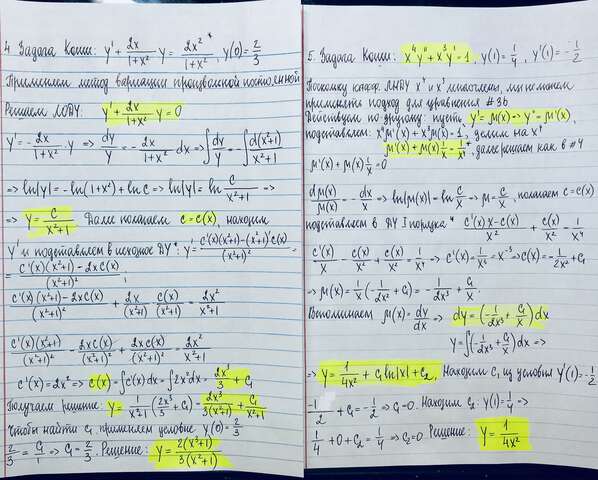 4. Задача Коши: y' + 2x/(1+x²) y = 2x²/(1+x²) *, y(0) = 2/3
Применяем метод вариации произвольной постоянной
Решаем ЛОДУ: y' + 2x/(1+x²) y = 0
y' = -2x/(1+x²) · y ⇒ dy/y = -2x/(1+x²) dx ⇒ ∫dy/y = -∫d(x²+1)/(x²+1)
⇒ ln|y| = -ln(1+x²) + ln c ⇒ ln|y| = ln c/(x²+1) ⇒
⇒ y = c/(x²+1) Далее полагаем c = c(x), находим
y' и подставляем в исходное ДУ*: y' = (c'(x)(x²+1) - (x²+1)'c(x))/(x²+1)² =
= (c'(x)(x²+1) - 2xc(x))/(x²+1)²
(c'(x)(x²+1) - 2xc(x))/(x²+1)² + 2x/(x²+1) · c(x)/(x²+1) = 2x²/(x²+1)
c'(x)(x²+1)/(x²+1)² - 2xc(x)/(x²+1)² + 2xc(x)/(x²+1)² = 2x²/(x²+1)
c'(x) = 2x² ⇒ c(x) = ∫c'(x)dx = ∫2x²dx = 2x³/3 + c₁
Получаем решение: y = 1/(x²+1) (2x³/3 + c₁) = 2x³/3(x²+1) + c₁/(x²+1)
Чтобы найти c₁ применяем условие y(0) = 2/3
2/3 = c₁/1 ⇒ c₁ = 2/3. Решение: y = 2(x³+1)/3(x²+1)
5. Задача Коши: x⁴y'' + x³y' = 1, y(1) = 1/4, y'(1) = -1/2
Поскольку коэфф. ЛНДУ x⁴ и x³ непостоянны, мы не можем
применять подход для уравнения #3b
Действуем по другому: пусть y' = μ(x) ⇒ y'' = μ'(x),
подставляем: x⁴μ'(x) + x³μ(x) = 1, делим на x⁴
μ'(x) + μ(x) 1/x = 1/x⁴, далее решаем как в #4
μ'(x) + μ(x) 1/x = 0
dμ(x)/μ(x) = -dx/x ⇒ ln|μ(x)| = ln c/x ⇒ μ = c/x, полагаем c = c(x)
подставляем в ДУ I порядка * (c'(x)·x - c(x))/x² + c(x)/x² = 1/x⁴
c'(x)/x - c(x)/x² + c(x)/x² = 1/x⁴ ⇒ c'(x) = 1/x³ = x⁻³ ⇒ c(x) = -1/2x² + c₁
⇒ μ(x) = 1/x (-1/2x² + c₁) = -1/2x³ + c₁/x
Вспоминаем μ(x) = dy/dx ⇒ dy = (-1/2x³ + c₁/x)dx
y = ∫(-1/2x³ + c₁/x)dx ⇒
⇒ y = 1/4x² + c₁ln|x| + c₂, Находим c₁ из условия y'(1) = -1/2
-1/2 + c₁ = -1/2 ⇒ c₁ = 0. Находим c₂: y(1) = 1/4 ⇒
1/4 + 0 + c₂ = 1/4 ⇒ c₂ = 0. Решение: y = 1/4x²